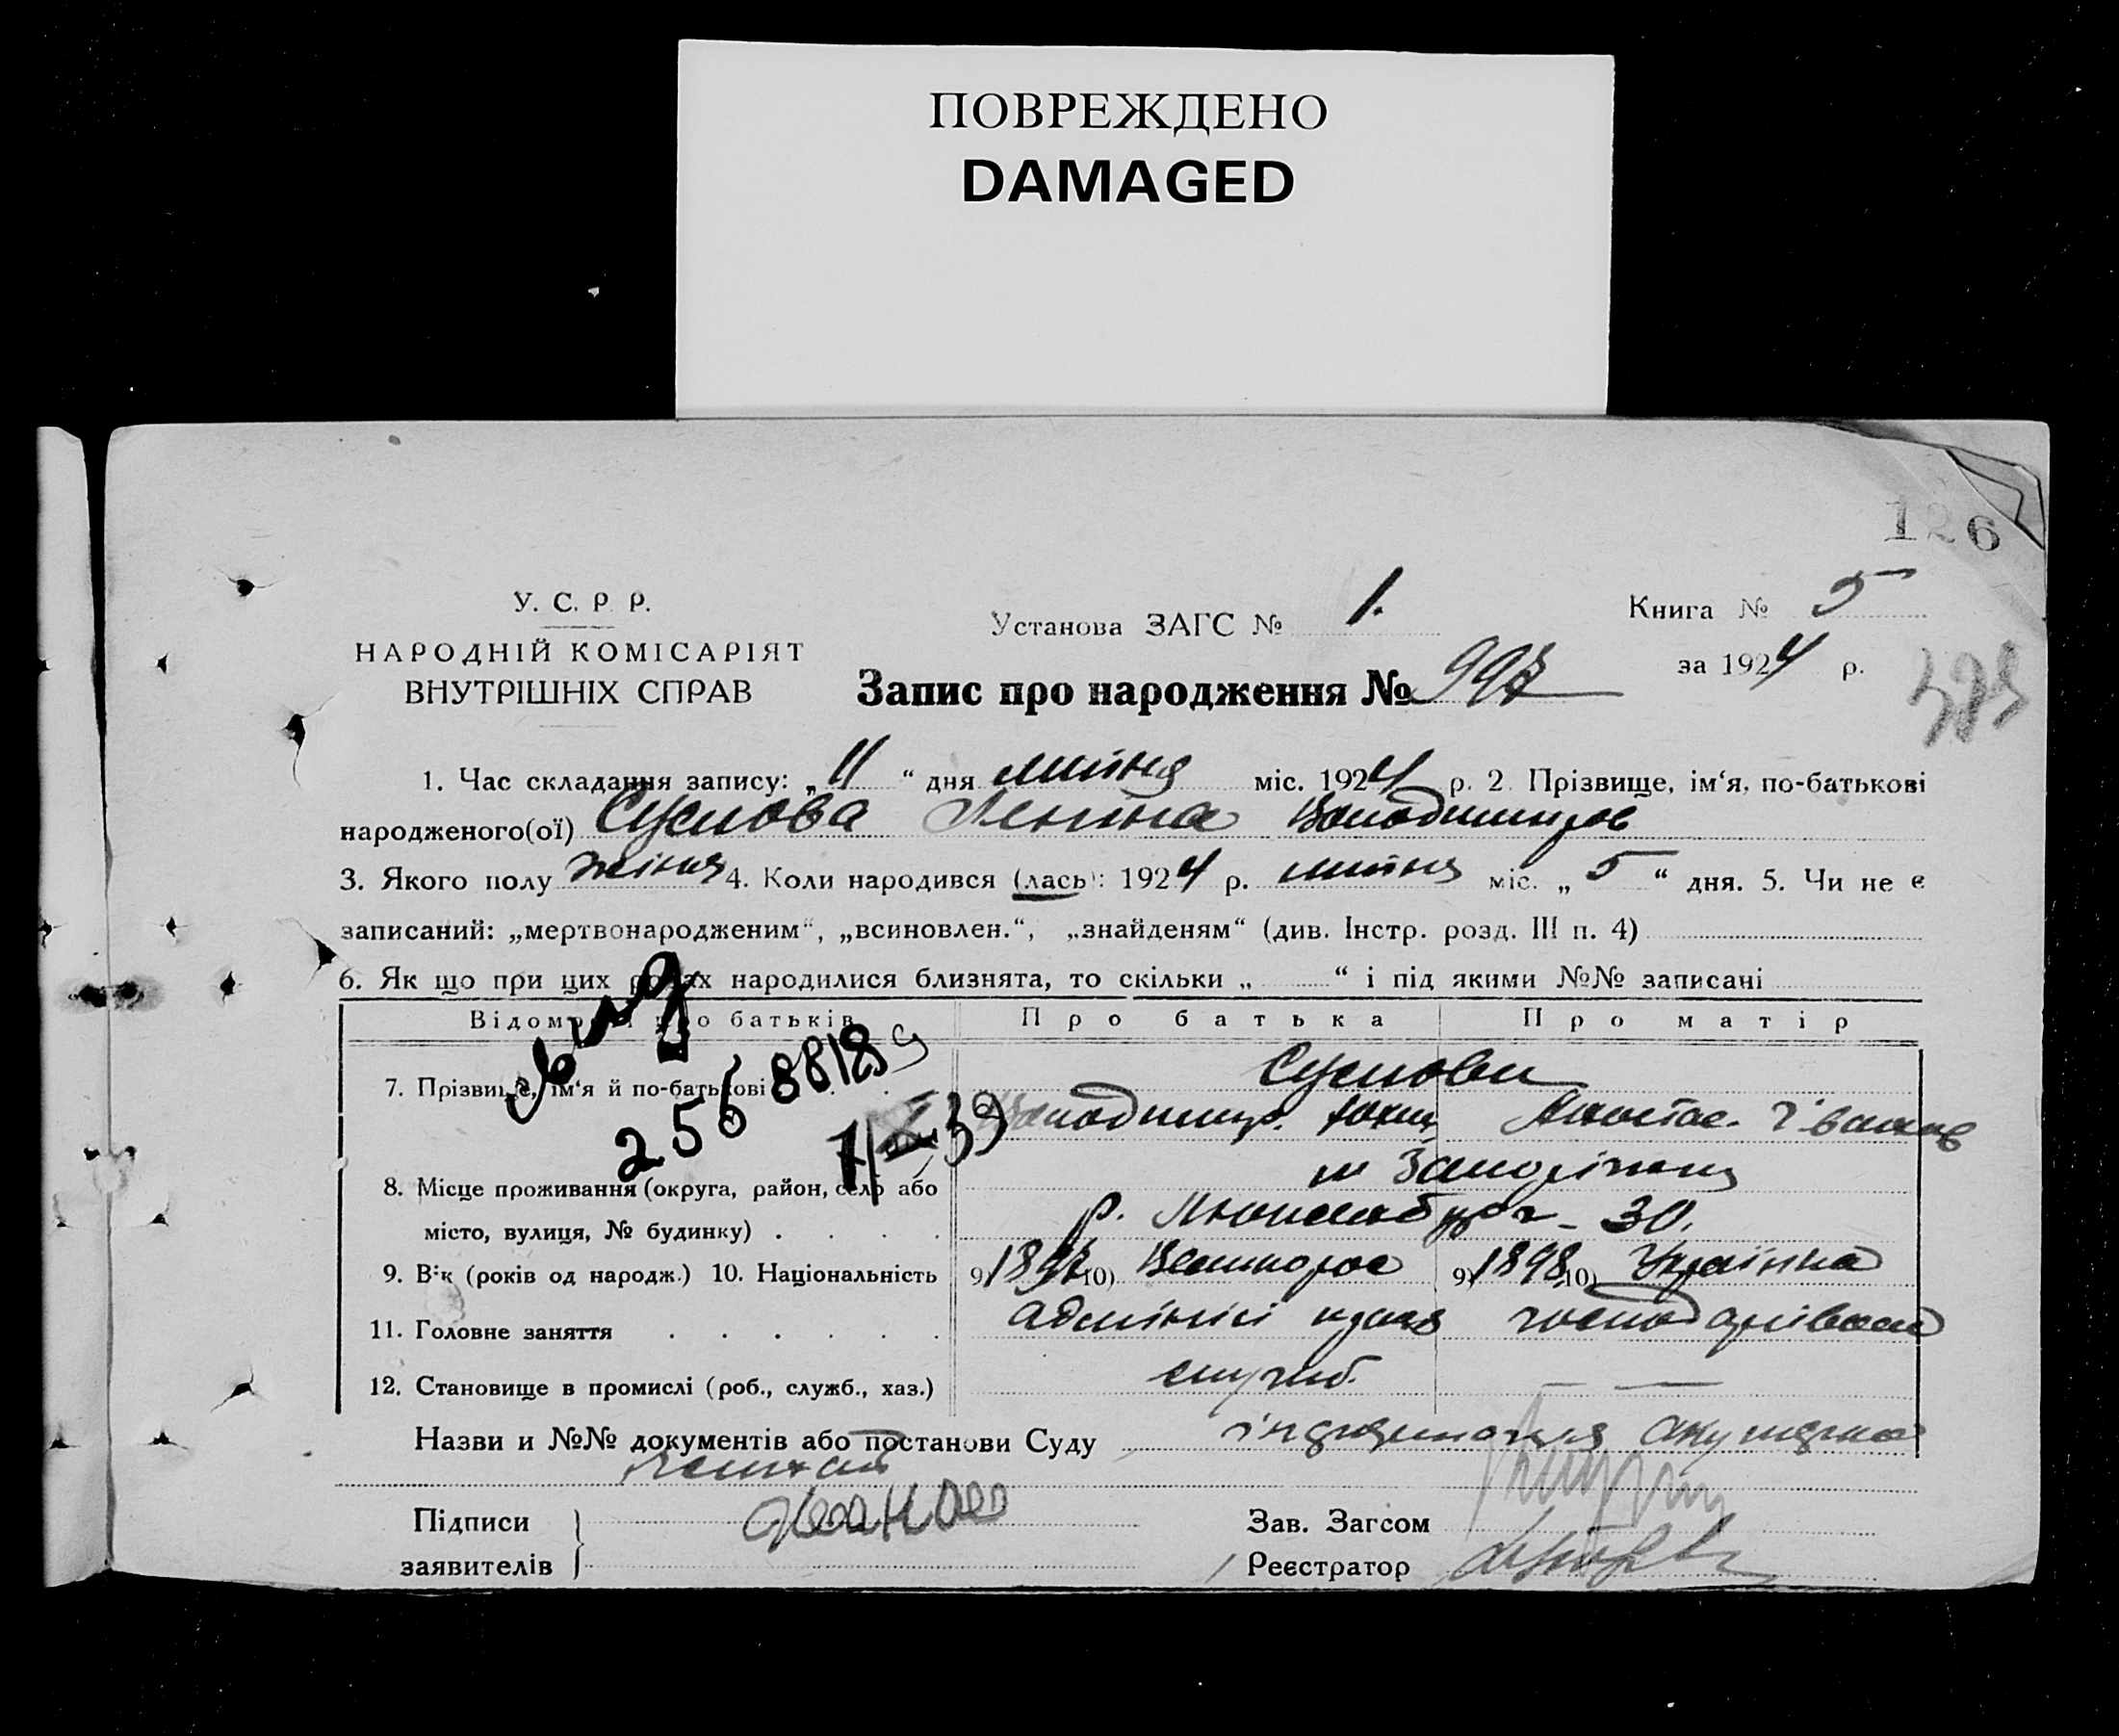 ПОВРЕЖДЕНО
DAMAGED
126
У. С. Р. Р.
НАРОДНІЙ КОМІСАРІЯТ
ВНУТРІШНІХ СПРАВ
Установа ЗАГС № 1.
Книга № 5
за 1924 р.
Запис про народження № 997
1. Час складання запису: „11“ дня липня міс. 1924 р. 2. Прізвище, ім‘я, по-батькові
народженого(ої) Суслова Леніна Володимиров
3. Якого полу жіноч 4. Коли народився (лась): 1924 р. липня міс. „5“ дня. 5. Чи не є
записаний: „мертвонародженим“, „всиновлен.“, „знайденям“ (див. Інстр. розд. III п. 4)
6. Як що при цих родах народилися близнята, то скільки „ “ і під якими №№ записані
Відомості про батьків Про батька Про матір
7. Прізвище, ім‘я й по-батькові Суслови
Володимир. Анастас. Іванов
256 88189
8. Місце проживання (округа, район, село або м Запоріжжя
місто, вулиця, № будинку) р. Люксембург - 30.
9. Вік (років од народж.) 10. Національність 9) 1897 10) Великорос 9) 1898 10) Українка
11. Головне заняття господарівом
12. Становище в промислі (роб., служб., хаз.) служб. —
Назви и №№ документів або постанови Суду акушерки
Підписи
заявителів
Зав. Загсом
Реєстратор